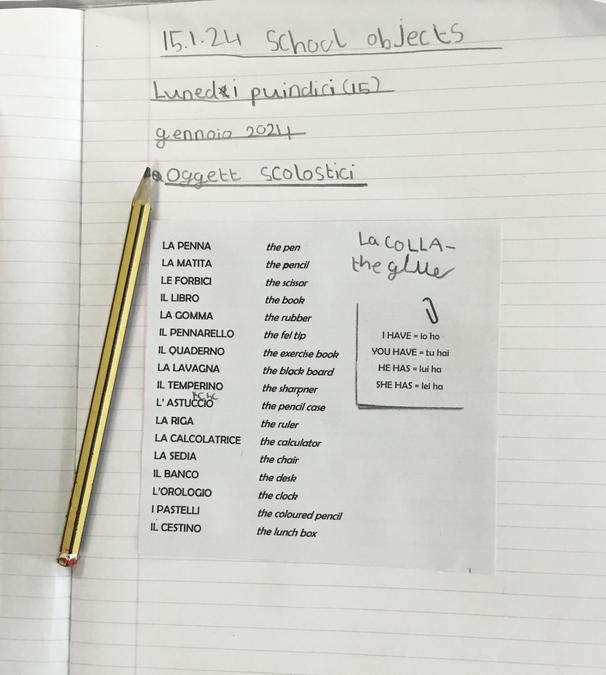 15.1.24 School objects
Lunedi puindici (15)
gennaio 2024
Oggett scolostici
LA PENNA the pen
LA MATITA the pencil
LE FORBICI the scissor
IL LIBRO the book
LA GOMMA the rubber
IL PENNARELLO the fel tip
IL QUADERNO the exercise book
LA LAVAGNA the black board
IL TEMPERINO the sharpner
L' ASTUCCIO the pencil case
LA RIGA the ruler
LA CALCOLATRICE the calculator
LA SEDIA the chair
IL BANCO the desk
L'OROLOGIO the clock
I PASTELLI the coloured pencil
IL CESTINO the lunch box
La COLLA-
the glue
I HAVE = io ho
YOU HAVE = tu hai
HE HAS = lui ha
SHE HAS = lei ha
1